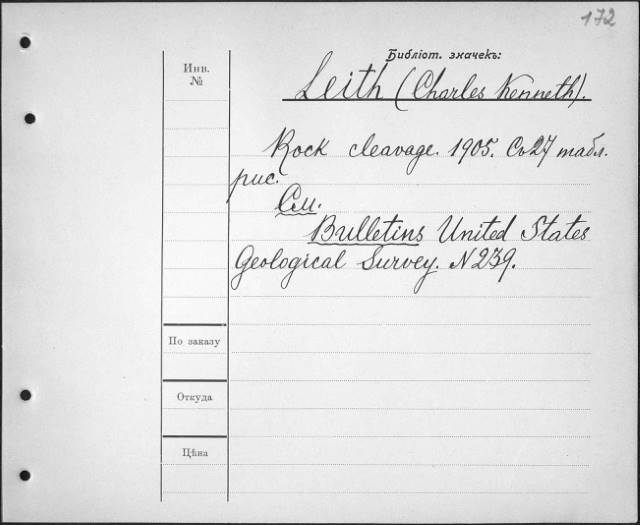 172
Библіот. значекъ:
Инв.
№
Leith (Charles Kenneth).
Rock cleavage. 1905. Съ 27 табл.
рис.
См.
Bulletins United States
Geological Survey. N 239.
По заказу
Откуда
Цѣна